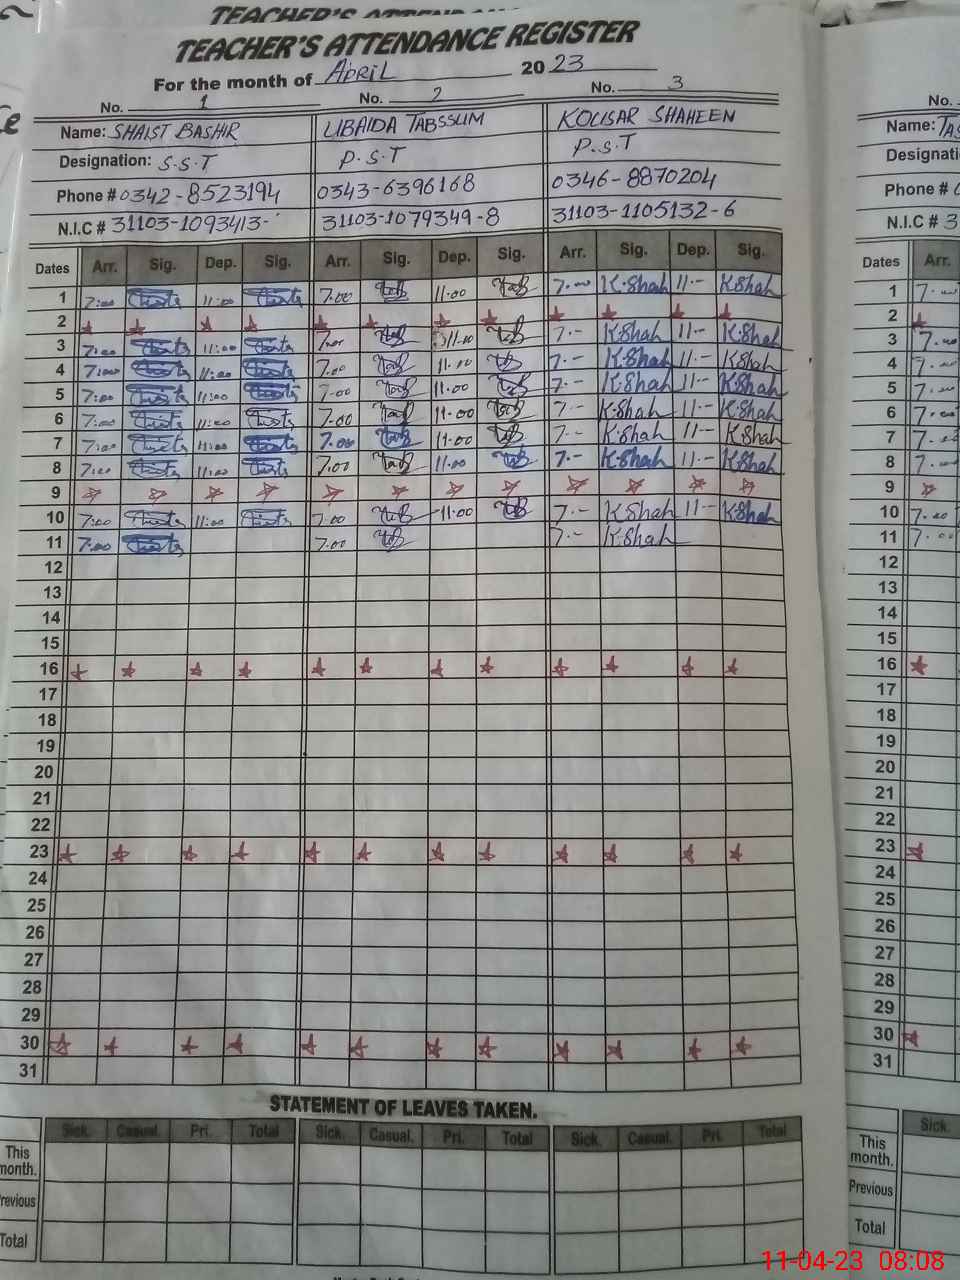 TEACHER'S ATTENDANCE REGISTER
For the month of APRIL 2023
No. 1 No. 2 No. 3 No.
Name: SHAIST BASHIR UBAIDA TABSSUM KOUSAR SHAHEEN Name:
Designation: S.S.T P.S.T P.S.T
Phone # 0342-8523194 0343-6396168 0346-8870204 Phone #
N.I.C # 31103-1093413- 31103-1079349-8 31103-1105132-6 N.I.C # 3
Dates Arr. Sig. Dep. Sig. Arr. Sig. Dep. Sig. Arr. Sig. Dep. Sig. Dates Arr.
1 7:00 11:00 7.00 11.00 7.-- K.Shah 11-- K.Shah 1 7.--
2 2
3 7:00 11:00 7.00 11.00 7.-- K.Shah 11-- K.Shah 3 7.00
4 7:00 11:00 7.00 11.00 7.-- K.Shah 11-- K.Shah 4 7.--
5 7:00 11:00 7.00 11.00 7.-- K.Shah 11-- K.Shah 5 7.--
6 7:00 11:00 7.00 11.00 7-- K.Shah 11-- K.Shah 6 7.00
7 7:00 11:00 7.00 11.00 7-- K.Shah 11-- K.Shah 7 7.00
8 7:00 11:00 7.00 11.00 7-- K.Shah 11-- K.Shah 8 7.--
9 9
10 7:00 11:00 7.00 11.00 7-- K.Shah 11-- K.Shah 10 7.00
11 7:00 7.00 7-- K.Shah 11 7.00
12 12
13 13
14 14
15 15
16 16
17 17
18 18
19 19
20 20
21 21
22 22
23 23
24 24
25 25
26 26
27 27
28 28
29 29
30 30
31 31
STATEMENT OF LEAVES TAKEN.
Sick. Casual. Pri. Total Sick. Casual. Pri. Total Sick. Casual. Pri. Total Sick.
This month. This month.
Previous Previous
Total Total
11-04-23 08:08